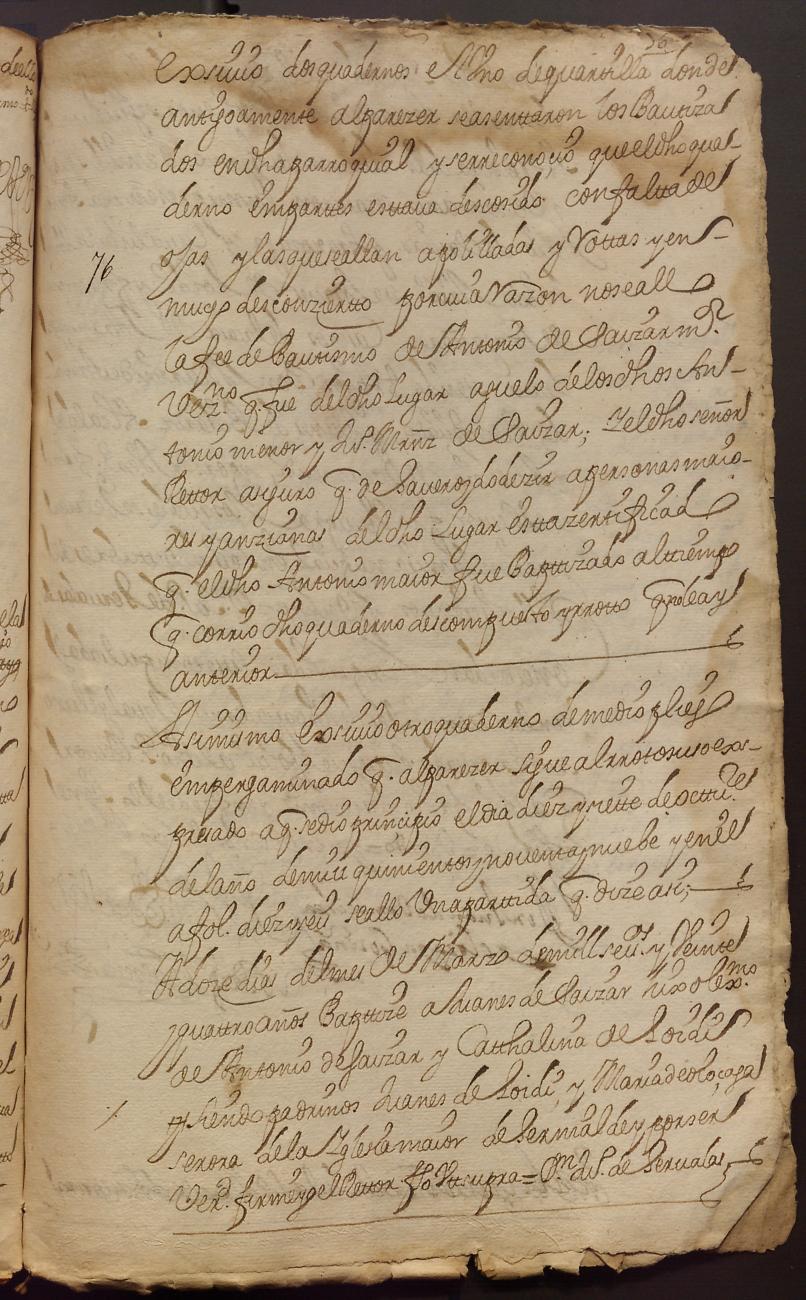 36
exsiuio dos quadernos el Uno de quartilla donde
antigoamente al parezer se asenttaron los Bautiza
dos en dha parroquial y se rreconoçio que el dho qua-
derno em parttes esttaua descosido con falta de
76
ojas y las que se allan apolilladas y Rottas y en
muy desconzierto por cuia Razon no se allo
la fee de Bautismo de Antonio de Saizar mor.
Vezno. q. fue del dho Lugar aguelo de los dhos An-
tonio menor y Ju.º Mrñz de Saizar; Y el dho señor
Rettor asiguro q. de hauer oydo dezir a personas maio-
res y anzianas del dho Lugar estta zertificado
q. el dho Antonio maior fue Baptizado al tiempo
q. corrio dho quaderno descompuesto y rrotto
anterior
Asimismo exsiuio otro quaderno de medio pliego
empergaminado q. al parezer sigue al rroto suso ex-
presado a q. se dio prinçipio el dia diez y siette de octture
del año de mill quinientos y nouenta y nuebe y en el
a fol. diez y seis se allo Una partida q. dize asi;
A doze dias del mes de Marzo de mill seisº. y Veinte
y quattro años Baptize a Juanes de Saizar hixo lexmo.
de Antonio de Saizar y Catthalina de Loidi
y siendo padrinos Juanes de Loidi, y Maria de oloçaga
serora de la Yglesia maior de hernialde y por ser
Verd. firme yo el Rettor fho Utt supra = Dn. Ju.º de Serualas